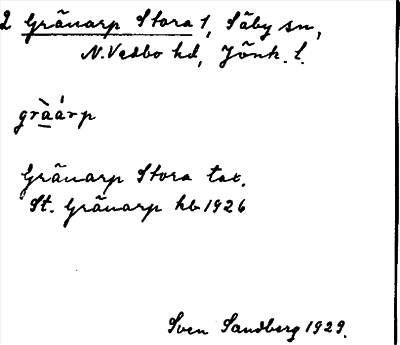 2 Gränarp Stora 1, Säby sn,
N. Vedbo hd, Jönk. l.
gràárp
Gränarp Stora tax.
St. Gränarp kb 1926
Sven Sandberg 1929.